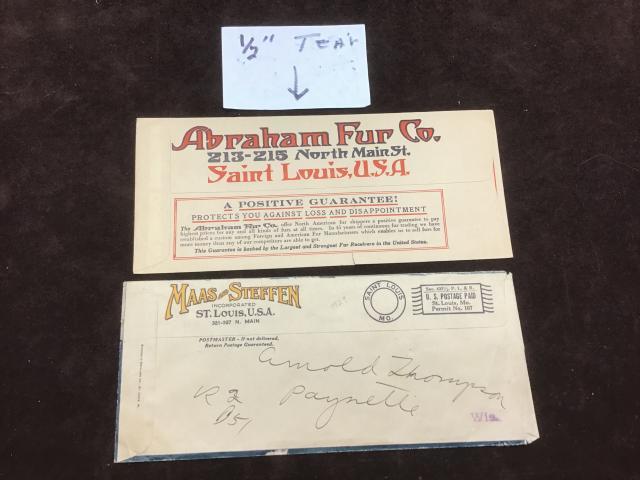 1/2" TEAR
Abraham Fur Co.
213-215 North Main St.
Saint Louis, U.S.A.
A POSITIVE GUARANTEE!
PROTECTS YOU AGAINST LOSS AND DISAPPOINTMENT
The Abraham Fur Co. offer North American fur shippers a positive guarantee to pay
highest prices for any and all kinds of furs at all times. In 55 years of continuous fur trading we have
established a custom among Foreign and American Fur Manufacturers which enables us to sell furs for
more money than any of our competitors are able to get.
This Guarantee is backed by the Largest and Strongest Fur Receivers in the United States.
MAAS AND STEFFEN
INCORPORATED
ST. LOUIS, U.S.A.
201-207 N. MAIN
SAINT LOUIS
MO.
Sec. 435½, P. L. & R.
U. S. POSTAGE PAID
St. Louis, Mo.
Permit No. 107
POSTMASTER - If not delivered,
Return Postage Guaranteed.
Arnold Thompson
R 2 Poynette
B51
Wis.